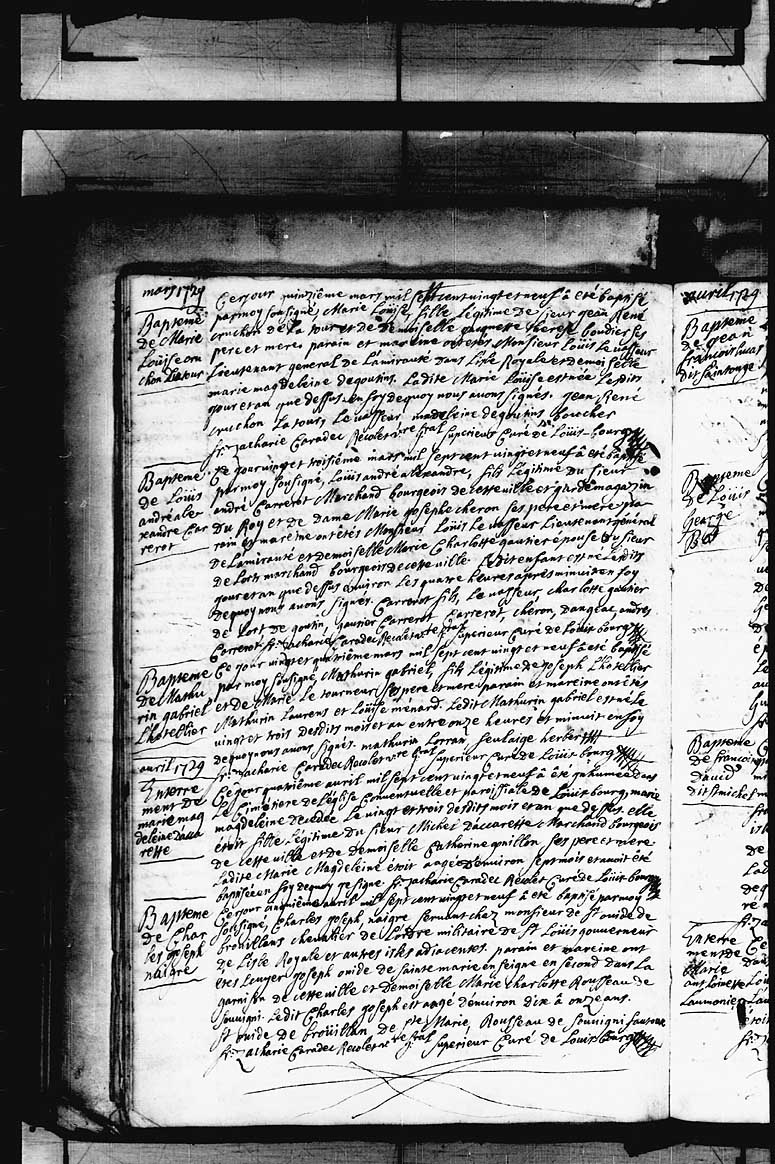 mars 1729
Bapteme
de Marie
Louise cru
chon Latour
Ce jour quinziême mars mil sept cent vingt et neuf à été baptisé
par moy sousigné, Marie Loüise, fille Légitime de sieur jean René
cruchon de La tour et de Demoiselle therese boudier ses
pere et mere parain et maraine ont étés Monsieur Loüis Le vasseur
Lieutenant general de L'amirauté dans L'isle Royale et demoiselle
marie magdeleine degoutins. Ladite Marie Loüise est née Lesdits
jour et an que dessus en foy de quoy nous avons signés. jean René
cruchon La tour, Le vasseur, madeleine degoutins boucher
fr. Zacharie Caradec Recolet vre gral Superieur Curé de Loüis-bourg
Bapteme
de Loüis
andré alex
xandre Car
rerot
Ce jour vingt et troisiême mars mil sept cent vingt et neuf à été baptisé
par moy sousigné, Loüis andré alexandre, fils Légitime du sieur
andré Carrerot Marchand bourgeois de cette ville et garde magazin
Du Roy et de Dame Marie josephe cheron ses pere et mere pa
rain et mareine ont étés Monsieur Loüis Le vasseur Lieutenant general
de L'amirauté et demoiselle Marie Charlotte gautier épouse du sieur
de Lort marchand bourgeois de cette ville Ledit enfant est né Lesdits
jour et an que dessus environ Les quatre heures apres minuit en foy
de quoy nous avons signés. Carrerot fils, Le vasseur, charlotte gautier
de Lort de goutin, Gautier Carrerot, Carrerot, cheron, Dangeac andré,
Carrerot fr. Zacharie Caradec Recolet vre gral Superieur Curé de Loüisbourg
Bapteme
de Mathu
rin gabriel
L'hotellier
Ce jour vingt et quatriême mars mil sept cent vingt et neuf à été baptisé
par moy sousigné, Mathurin gabriel, fils Légitime de joseph L'hotellier
et de Marie Le tourneur ses pere et mere parain et mareine ont étés
Mathurin Laurens et Loüise ménard. Ledit Mathurin gabriel est né Le
vingt et trois desdits mois et an entre onze heures et minuit en foy
de quoy nous avons signés. mathurin Lorran herbert
fr. Zacharie Caradec Recolet vre gral Superieur Curé de Loüisbourg
avril 1729
Enterre
ment de
marie mag
deleine Dacca
rette
Ce jour quatriême avril mil sept cent vingt et neuf à été inhumée dans
Le Cimetiere de L'église Conventuelle et paroissiale de Loüisbourg, marie
magdeleine decedée Le vingt et trois desdits mois et an que dessus. elle
étoit fille Légitime du sieur Michel Daccarrette Marchand bourgeois
de cette ville et de Demoiselle Catherine gonillon ses pere et mere
Ladite Marie Magdeleine étoit aagée denviron sept mois et avoit été
baptisée en foy de quoy je signe fr. Zacharie Caradec Recolet Curé de Loüisbourg
Bapteme
de Char
les joseph
naigre
Ce jour onziême avril mil sept cent vingt et neuf à été baptisé par moy
sousigné, Charles joseph naigre servant chez monsieur de St ovide de
brouillans chevalier de L'ordre militaire de St Loüis gouverneur
de L'isle Royale et autres isles adjacentes. parain et mareine ont
étés joseph ovide de sainte marie enseigne en second dans La
garnison de cette ville et Demoiselle Marie charlotte Rousseau de
souvigni. Ledit Charles joseph est aagé denviron dix à onze ans.
St ovide de broüillan de Ste Marie, Rousseau de Souvigni
fr. Zacharie Caradec Recolet vre gral Superieur Curé de Loüisbourg
avril 1729
Bapteme
de jean
francois Lucas
dit saintonge
Bapteme
de Loüis
George
Bapteme
de francois
david
dit st michel
Enterre
ment de
Marie
Laumonier